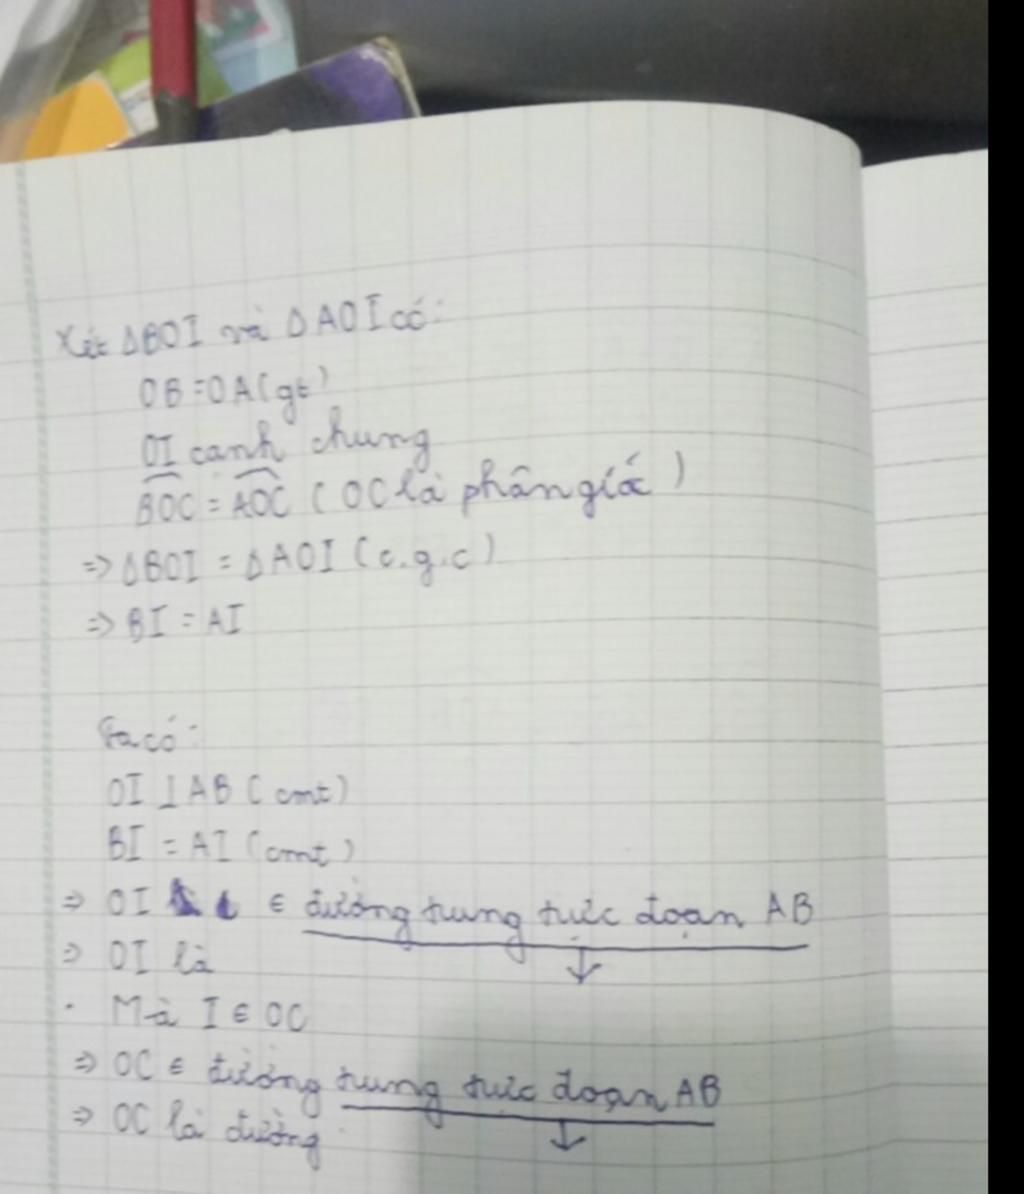 Xét ΔBOI và ΔAOI có:
OB = OA (gt)
OI canh chung
BOC = AOC (OC là phân giác)
=> ΔBOI = ΔAOI (c.g.c)
=> BI = AI
Ta có:
OI ⊥ AB (cmt)
BI = AI (cmt)
=> OI ∈ đường trung trực đoạn AB
=> OI là
. Mà I ∈ OC
=> OC ∈ đường trung trực đoạn AB
=> OC là đường